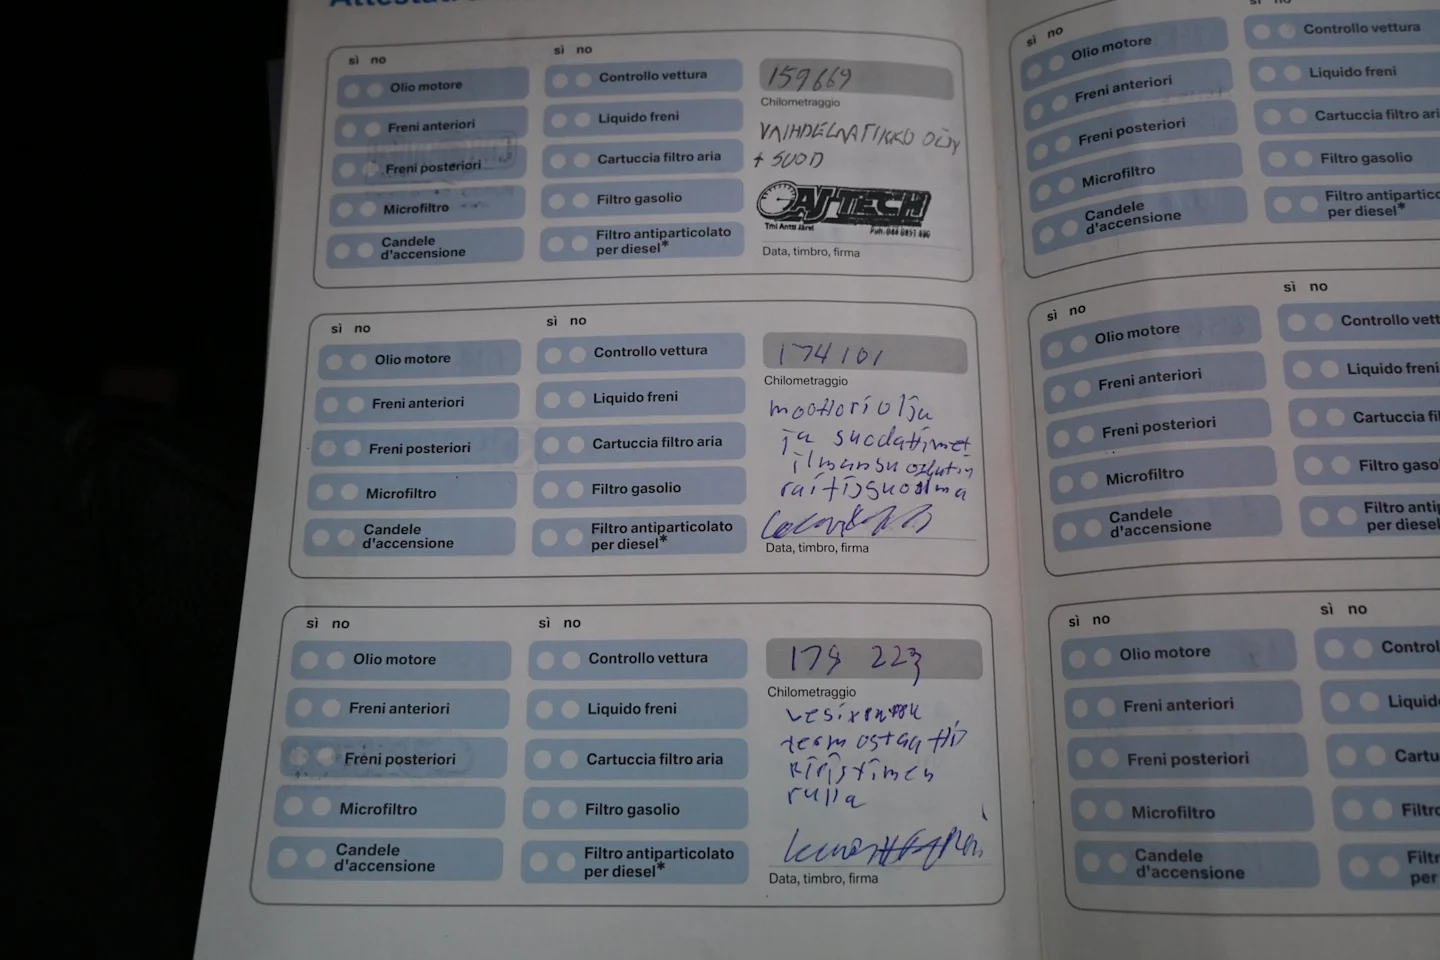 sì no
Olio motore
Freni anteriori
Freni posteriori
Microfiltro
Candele
d'accensione
sì no
Controllo vettura
Liquido freni
Cartuccia filtro aria
Filtro gasolio
Filtro antiparticolato
per diesel*
159669
Chilometraggio
VAIHDELAATIKKO ÖLJY
+ SUOD
AJ-TECH
Tmi Antti Järvi
Data, timbro, firma
sì no
Olio motore
Freni anteriori
Freni posteriori
Microfiltro
Candele
d'accensione
sì no
Controllo vettura
Liquido freni
Cartuccia filtro aria
Filtro gasolio
Filtro antiparticolato
per diesel*
174101
Chilometraggio
moottoriolju
ja suodattimet
raitisuodma
Data, timbro, firma
sì no
Olio motore
Freni anteriori
Freni posteriori
Microfiltro
Candele
d'accensione
sì no
Controllo vettura
Liquido freni
Cartuccia filtro aria
Filtro gasolio
Filtro antiparticolato
per diesel*
178 223
Chilometraggio
termostaatti
kiristimen
rulla
Data, timbro, firma
sì no
Olio motore
Freni anteriori
Freni posteriori
Microfiltro
Candele
d'accensione
sì no
Controllo vettura
Liquido freni
Cartuccia filtro ari
Filtro gasolio
Filtro antipartico
per diesel*
sì no
Olio motore
Freni anteriori
Freni posteriori
Microfiltro
Candele
d'accensione
sì no
Controllo vett
Liquido freni
Cartuccia fil
Filtro gaso
Filtro antip
per diesel
sì no
Olio motore
Freni anteriori
Freni posteriori
Microfiltro
Candele
d'accensione
sì no
Control
Liquid
Cartu
Filtro
Filtr
per